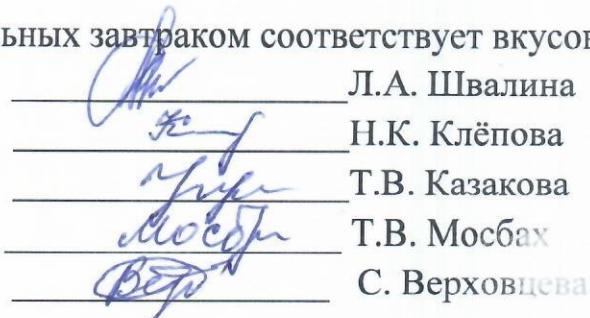 ьных завтраком соответствует вкусов
Л.А. Швалина
Н.К. Клёпова
Т.В. Казакова
Т.В. Мосбах
С. Верховцева